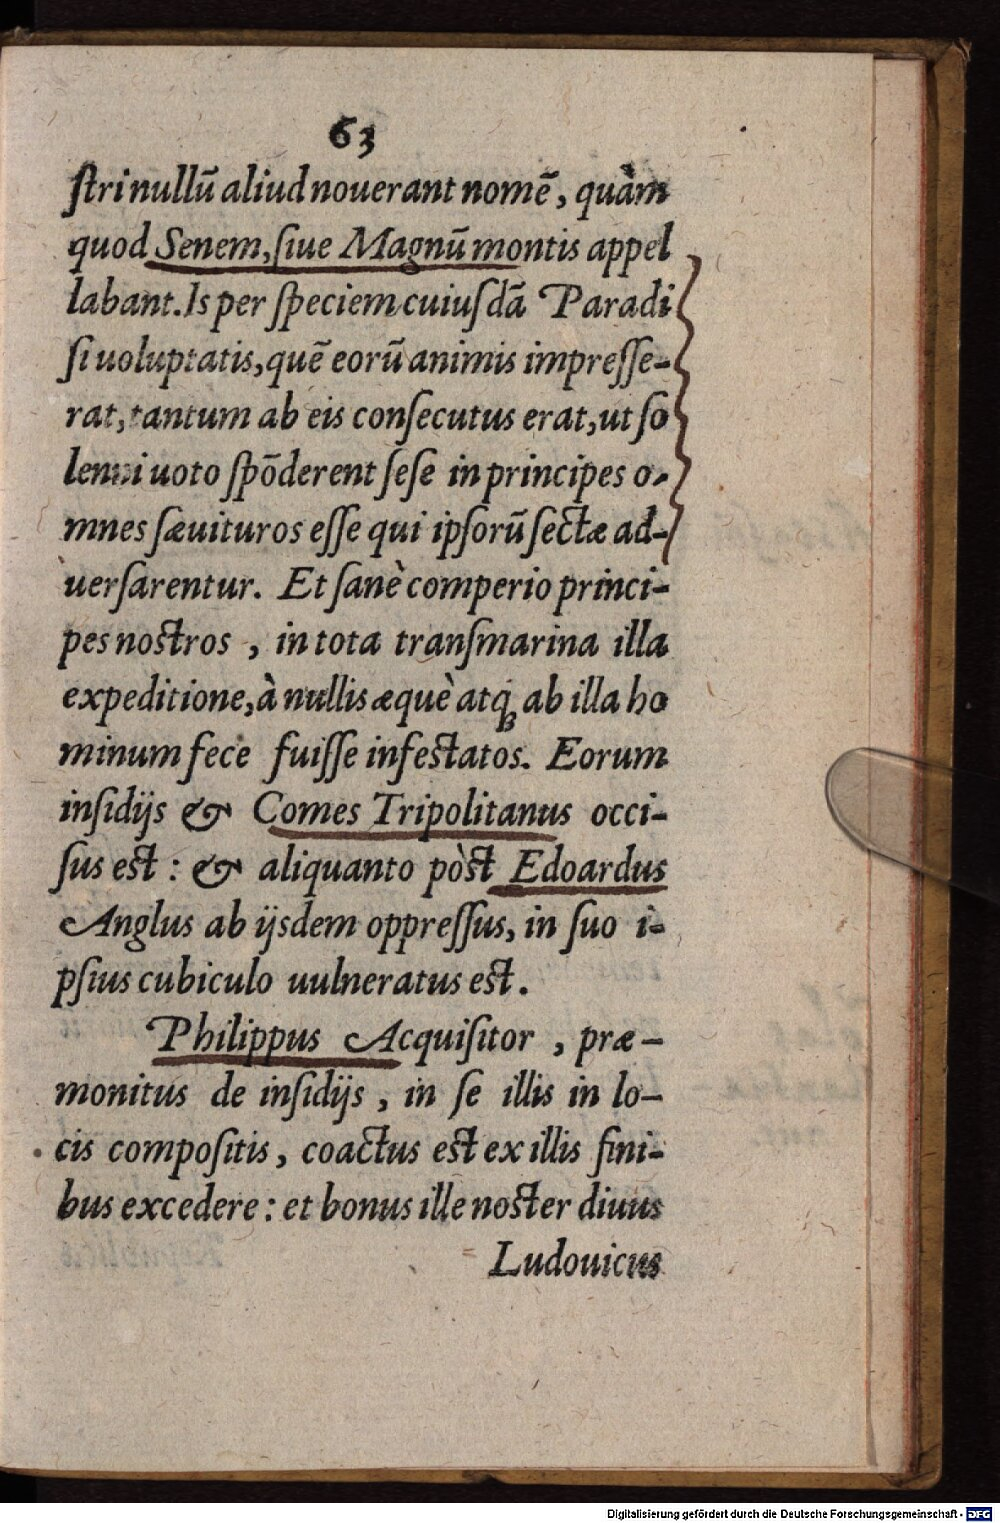 63
ſtri nullū aliud nouerant nomē, quàm
quod Senem, ſiue Magnū montis appel
labant. Is per ſpeciem cuiuſdā Paradi
ſi uoluptatis, quē eorū animis impreſſe-
rat, tantum ab eis conſecutus erat, ut ſo
lenni uoto ſpōderent ſeſe in principes o-
mnes ſæuituros eſſe qui ipſorū ſectæ ad-
uerſarentur. Et ſanè comperio princi-
pes noſtros, in tota tranſmarina illa
expeditione, à nullis æquè atq; ab illa ho
minum fece fuiſſe infeſtatos. Eorum
inſidijs & Comes Tripolitanus occi-
ſus eſt: & aliquanto pòſt Edoardus
Anglus ab ijsdem oppreſſus, in ſuo i-
pſius cubiculo uulneratus eſt.
Philippus Acquiſitor, præ-
monitus de inſidijs, in ſe illis in lo-
cis compoſitis, coactus eſt ex illis fini-
bus excedere: et bonus ille noſter diuus
Ludouicus
Digitalisierung gefördert durch die Deutsche Forschungsgemeinschaft - DFG